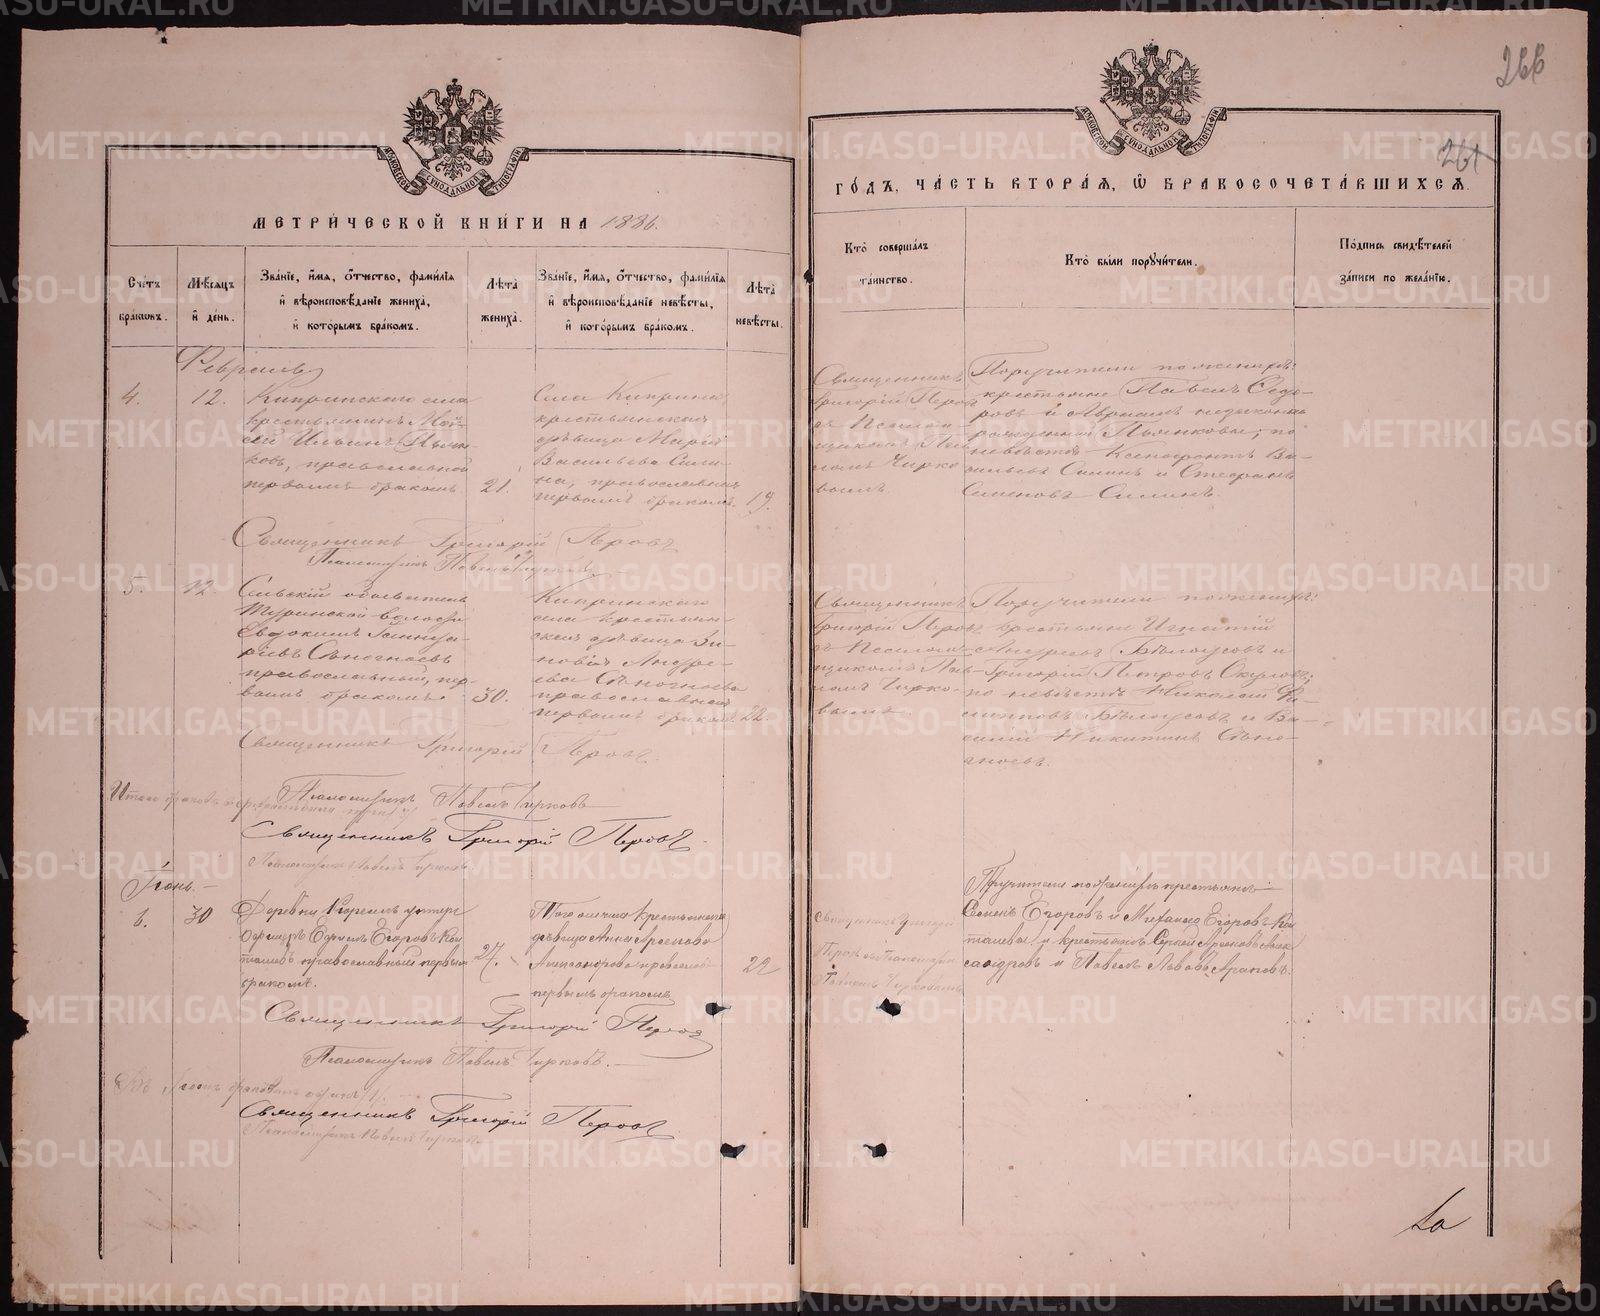 266
261
МЕТРИ́ЧЕСКОЙ КНИ́ГИ НА 1886.
ГО́ДЪ, ЧА́СТЬ ВТОРА́Я, Ѿ БРАКОСОЧЕТА́ВШИХСЯ.
МОСКОВСКОЙ СѴНОДАЛЬНОЙ ТИПОГРАФІИ
МОСКОВСКОЙ СѴНОДАЛЬНОЙ ТИПОГРАФІИ
Сче́тъ
бра́ковъ.
Мѣ́сяцъ
и҆ де́нь.
Зва́ніе, и҆́мя, ѻ҆́тчество, фами́лія
и҆ вѣроисповѣ́даніе жениха̀,
и҆ кото́рымъ бра́комъ.
Лѣ́та
жениха̀.
Зва́ніе, и҆́мя, ѻ҆́тчество, фами́лія
и҆ вѣроисповѣ́даніе невѣ́сты,
и҆ кото́рымъ бра́комъ.
Лѣ́та
невѣ́сты.
Кто̀ соверша́лъ
та́инство.
Кто̀ бы́ли порꙋчи́тели.
По́дпись свидѣ́телей
за́писи по жела́нію.
Февраль
4.
12.
Кипринскаго села
крестьянинъ Мои-
сей Ильинъ Пьян-
ковъ, православной
первымъ бракомъ.
21.
Села Киприна
крестьянская
дѣвица Марія
Васильева Сили-
на, православная
первымъ бракомъ.
19.
Священникъ
Григорій Перов
съ Псалом-
щикомъ Пав-
ломъ Чирко-
вымъ.
Поручители по женихѣ:
крестьяне Павелъ Седо-
ровъ и Авраамъ
Пьянковы; по
невѣстѣ Ксенофонтъ Ва-
сильевъ Силинъ и Стефанъ
Семеновъ Силинъ.
Священникъ Григорій Перовъ
Псаломщикъ Павелъ Чирковъ
5.
12.
Сельскій обыватель
Туринской волости
Евдокимъ Іаннуа-
ріевъ Сѣногноевъ
православный, пер-
вымъ бракомъ.
30.
Кипринскаго
села крестьян-
ская дѣвица Зи-
новія Андре-
ева Сѣногноева
православная
первымъ бракомъ
22.
Священникъ
Григорій Перов
съ Псалом-
щикомъ Пав-
ломъ Чирко-
вымъ
Поручители по женихѣ:
крестьяне Игнатій
Андреевъ Бѣлоусовъ и
Григорій Петровъ
по невѣстѣ Николай Фи-
липповъ Бѣлоусовъ и Ва-
силій Никитинъ Сѣно-
гноевъ.
Священникъ Григорій Перовъ.
Псаломщикъ Павелъ Чирковъ
Итого браковъ въ
Священникъ Григорій Перовъ.
Псаломщикъ Павелъ Чирковъ
Іюнь.
6.
30
Деревни унтеръ
Офицеръ Ефимъ Егоровъ Кон-
ташевъ православный первымъ
бракомъ.
27.
Того селенія крестьянская
дѣвица Анна Арсенова
Александрова православной
первымъ бракомъ
22
Священникъ Григорій
Перовъ съ Псаломщикомъ
Павломъ Чирковымъ
Поручители по женихѣ крестьяне
Семенъ Егоровъ и Михаилъ Егоровъ Кон-
ташевы и крестьянъ Сергій Арсеновъ Алек-
сандровъ и Павелъ Львовъ Араповъ.
Священникъ Григорій Перовъ
Псаломщикъ Павелъ Чирковъ.
Въ Іюнѣ браковъ одинъ /1/.
Священникъ Григорій Перовъ
Псаломщикъ Павелъ Чирковъ
METRIKI.GASO-URAL.RU